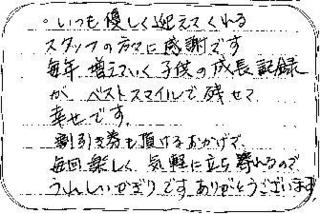 。いつも優しく迎えてくれる
スタッフの方々に感謝です
毎年増えていく子供の成長記録
が ベストスマイルで残せて
幸せです。
割引き券も頂けるおかげで、
毎回楽しく 気軽に立ち寄れるので
うれしいかぎりです ありがとうございます